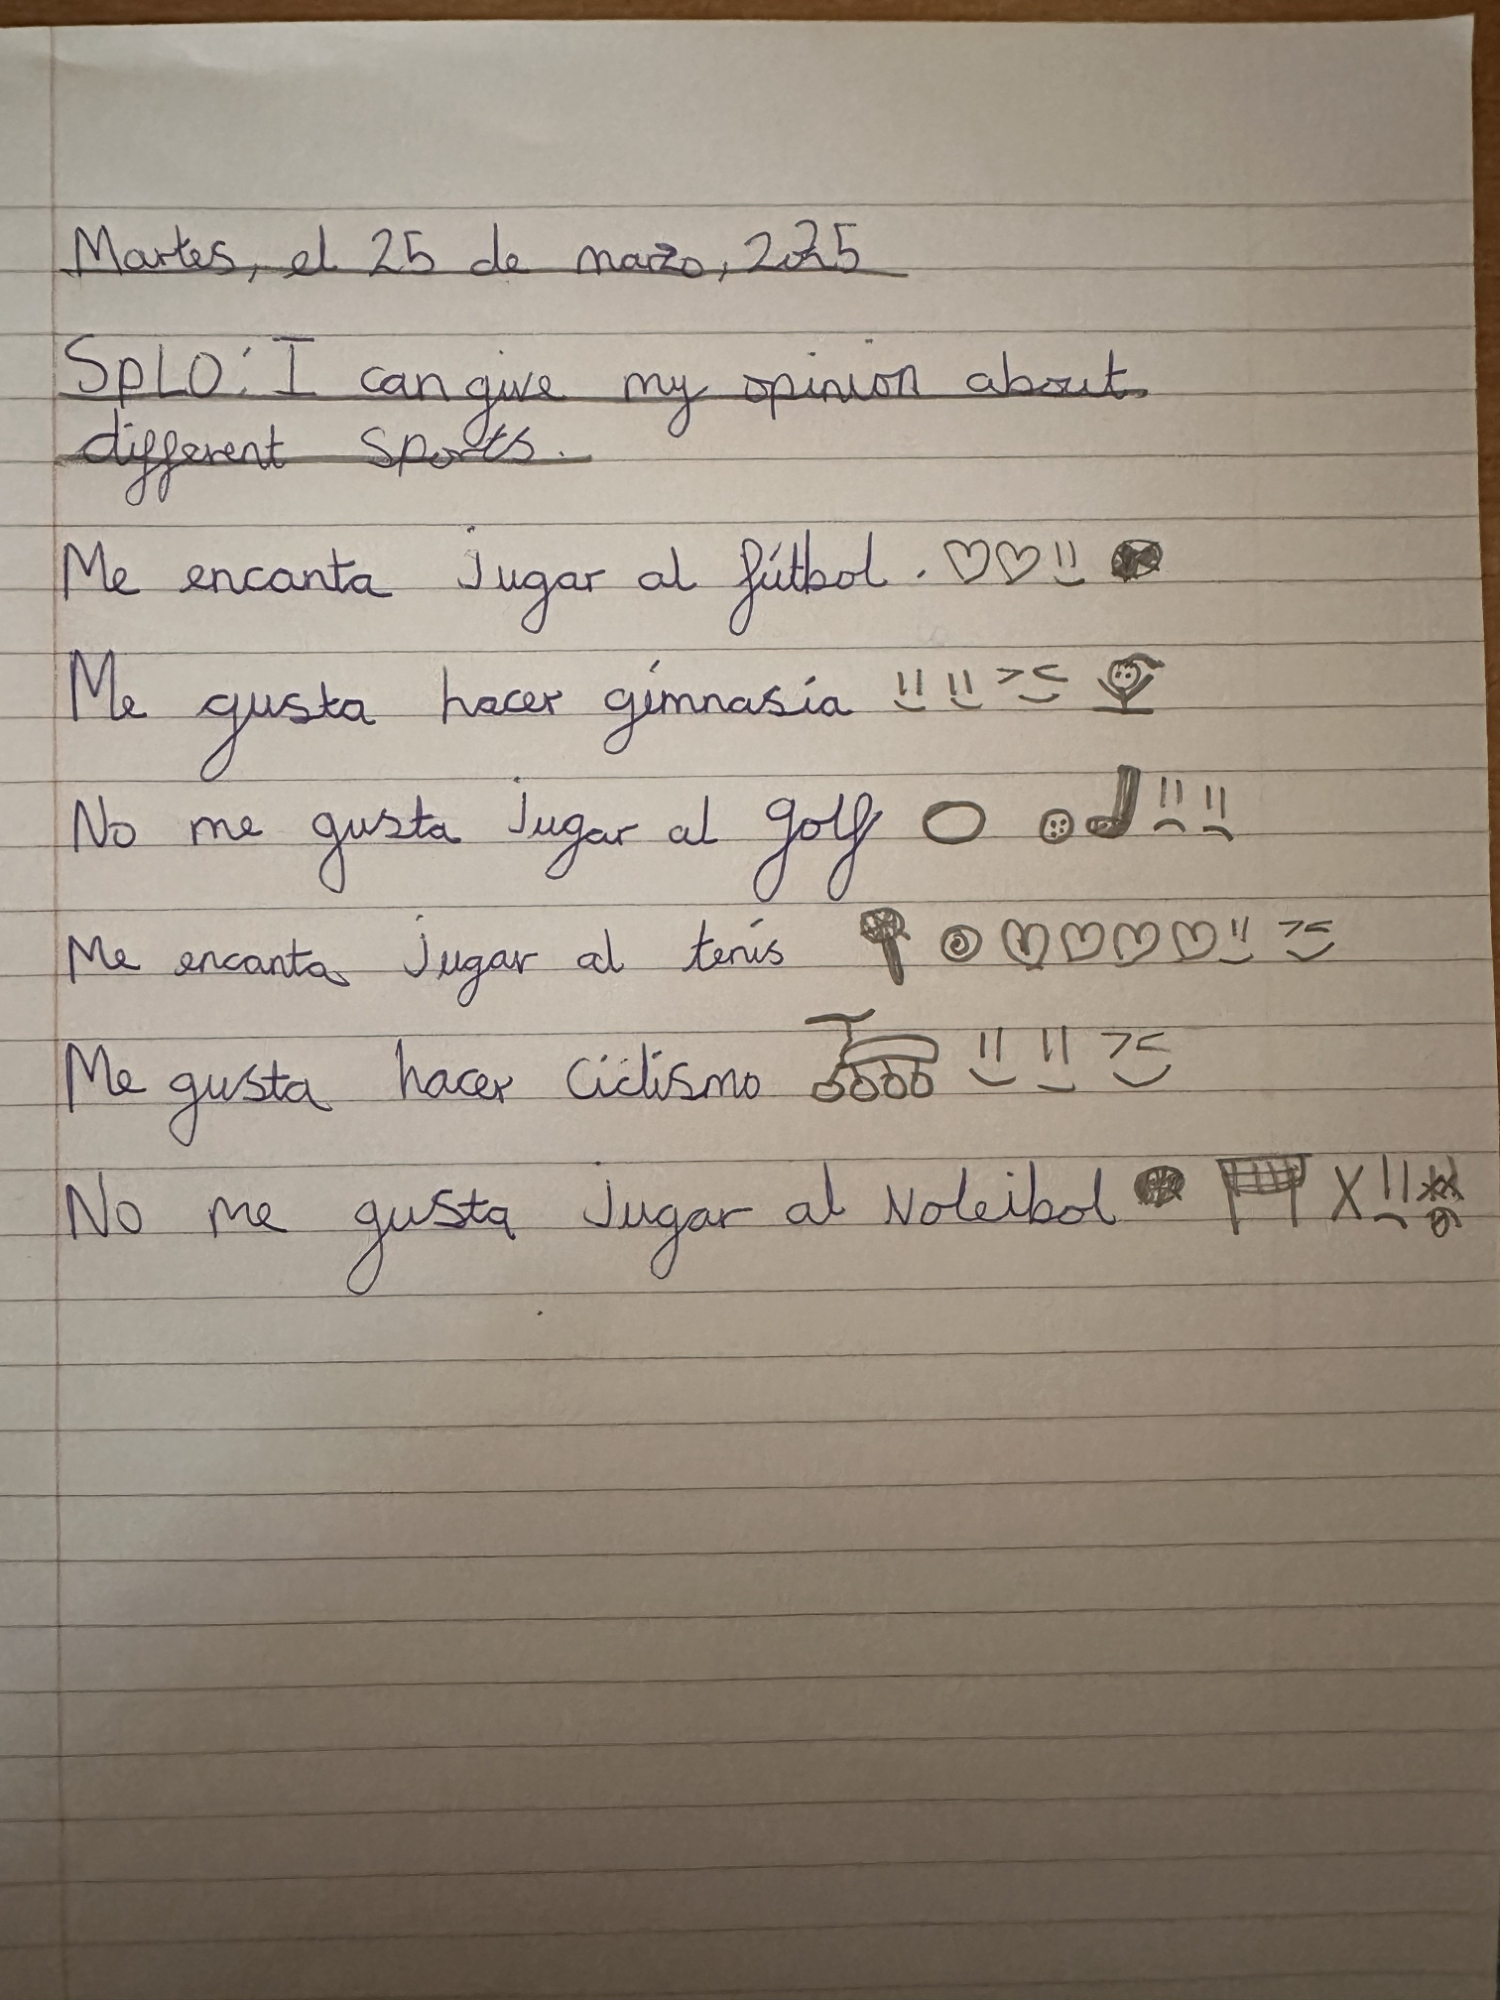 Martes, el 25 de marzo, 2025
SpLO: I can give my opinion about
different sports.
Me encanta jugar al fútbol.
Me gusta hacer gimnasia
No me gusta jugar al golf
Me encanta jugar al tenis
Me gusta hacer ciclismo
No me gusta jugar al Voleibol